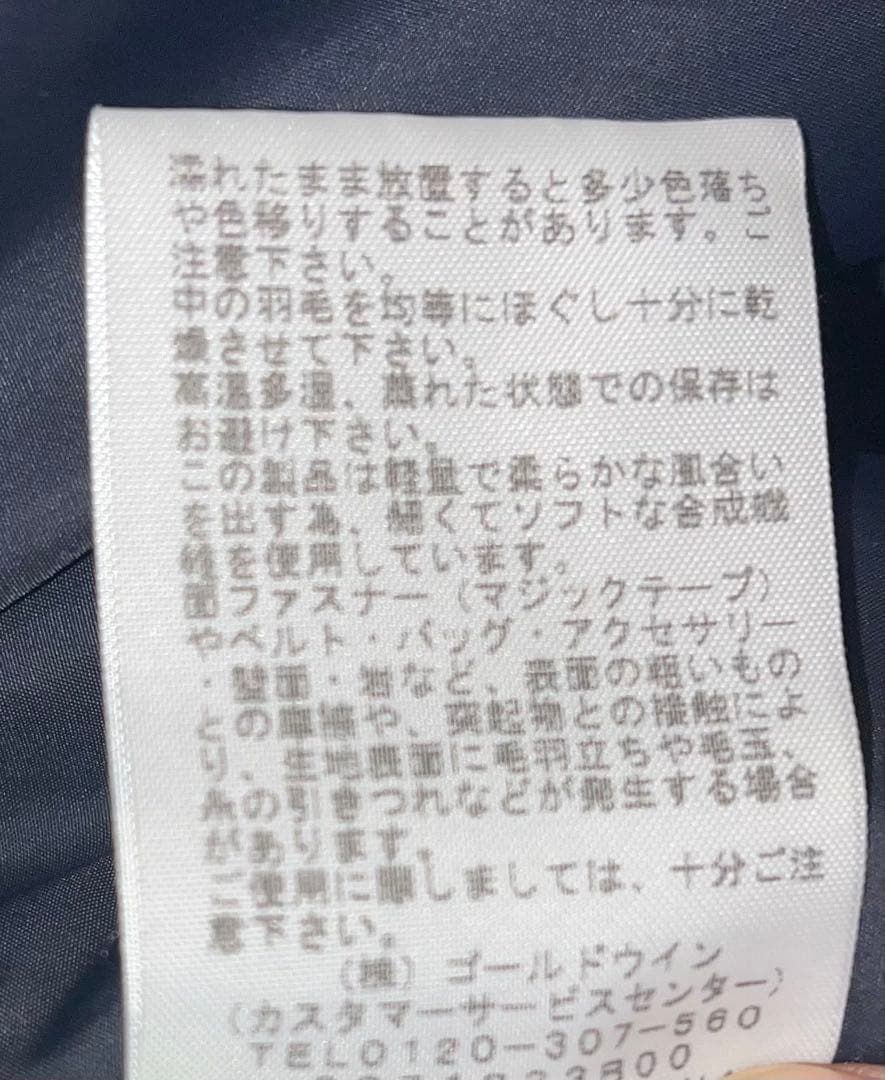 濡れたまま放置すると多少色落ち
や色移りすることがあります。ご
注意下さい。
中の羽毛を均等にほぐし十分に乾
燥させて下さい。
高温多湿、蒸れた状態での保存は
お避け下さい。
この製品は軽量で柔らかな風合い
を出す為、細くてソフトな合成繊
維を使用しています。
面ファスナー(マジックテープ)
やベルト・バッグ・アクセサリー
・壁面・岩など、表面の粗いもの
との摩擦や、突起物との接触によ
り、生地表面に毛羽立ちや毛玉、
糸の引きつれなどが発生する場合
があります。
ご使用に際しましては、十分ご注
意下さい。
(株)ゴールドウイン
(カスタマーサービスセンター)
TEL0120-307-560